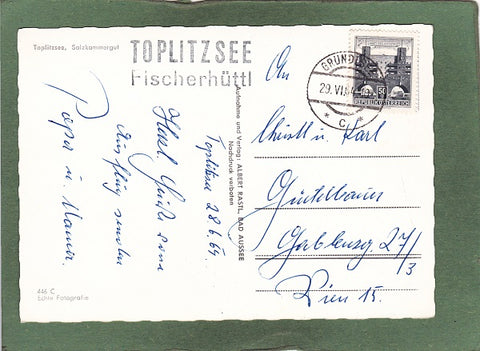 Toplitzsee, Salzkammergut
TOPLITZSEE
Fischerhüttl
Toplitzsee 28.6.64
Herzl. Grüße vom
Ausflug senden
Papa u. Mama.
446 C
Echte Fotografie
Aufnahme und Verlag: ALBERT RASTL, BAD AUSSEE
Nachdruck verboten
GRUNDL
29. VI. 64
C
50
REPUBLIK ÖSTERREICH
An
Christl u. Karl
Gablenzg. 27/3
Wien 15.